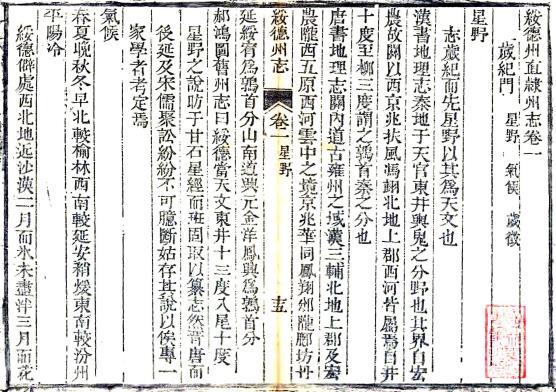 綏德州直隸州志卷一
歲紀門 星野 氣候 歲徵
星野
志歲紀而先星野以其爲天文也
漢書地理志秦地于天官東井輿鬼之分野也其界自宏
農故關以西京兆扶風馮翊北地上郡西河皆屬焉自井
十度至柳三度謂之鶉首秦之分也
唐書地理志關內道古雍州之域漢三輔北地上郡及宏
農隴西五原西河雲中之境京兆華同鳳翔邠隴鄜坊丹
綏德州志 卷一 星野 十五
延綏宥爲鶉首分山南道興元金洋鳳興爲鶉首分
郝鴻圖舊州志曰綏德當天文東井十三度入尾十度
星野之說昉于甘石星經而班固取以纂志然晉唐而
後延及宋儒聚訟紛紛不可臆斷姑存其說以俟專一
家學者考定焉
氣候
春夏晚秋冬早北較榆林西南較延安稍煖東南較汾州
平陽冷
綏德僻處西北地近沙漠二月而氷未盡泮三月而花